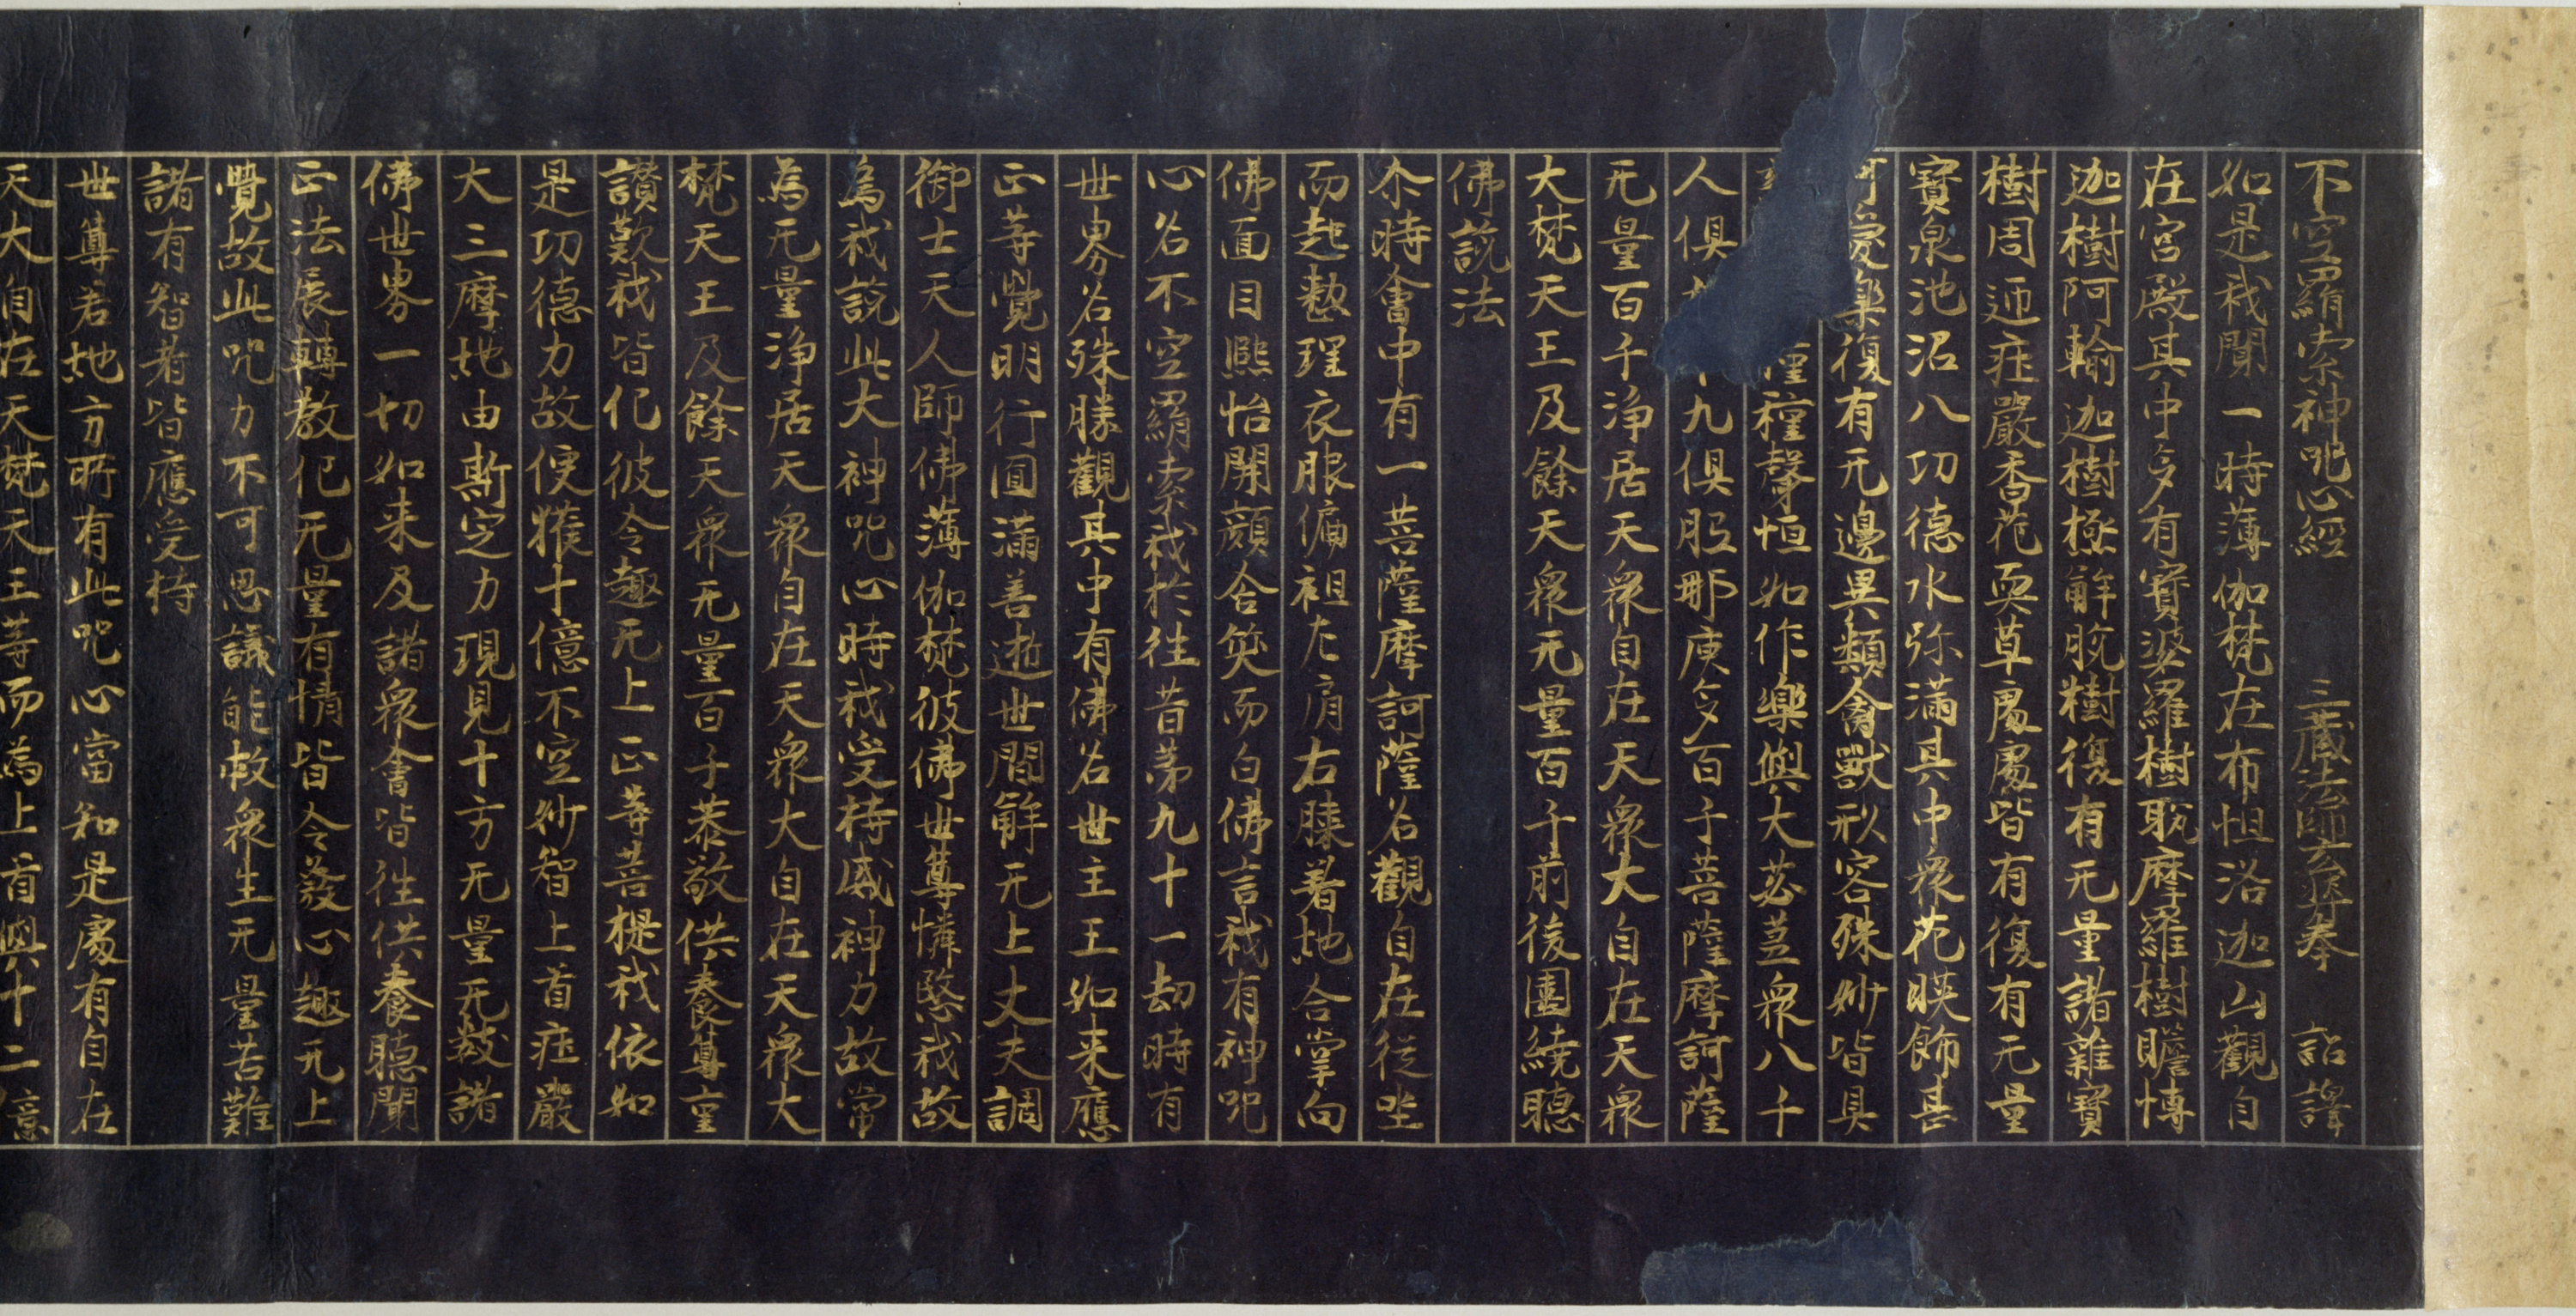 不空羂索神呪心經　三藏法師玄奘奉　詔譯
如是我聞一時薄伽梵在布怛洛迦山觀自
在宮殿其中多有寶娑羅樹耽摩羅樹瞻博
迦樹阿輸迦樹極解脫樹復有无量諸雜寶
樹周迊庄嚴香花耎草處處皆有復有无量
寶泉池沼八功德水弥滿其中衆花暎飾甚
可愛樂復有无邊異類禽獸形容殊妙皆具
種種聲恒如作樂與大苾蒭衆八千
人俱九俱胝那庾多百千菩薩摩訶薩
无量百千淨居天衆自在天衆大自在天衆
大梵天王及餘天衆无量百千前後圍繞聽
佛說法
尒時會中有一菩薩摩訶薩名觀自在從坐
而起整理衣服偏袒左肩右膝著地合掌向
佛面目熙怡開顏含笑而白佛言我有神呪
心名不空羂索我於往昔第九十一劫時有
世界名殊勝觀其中有佛名世主王如来應
正等覺明行圓滿善逝世間解无上丈夫調
御士天人師佛薄伽梵彼佛世尊憐愍我故
為我說此大神呪心時我受持威神力故常
為无量淨居天衆自在天衆大自在天衆大
梵天王及餘天衆无量百千恭敬供養尊重
讃歎我皆化彼令趣无上正等菩提我依如
是功德力故便獲十億不空妙智上首庄嚴
大三摩地由斯定力現見十方无量无數諸
佛世界一切如来及諸衆會皆往供養聽聞
正法展轉教化无量有情皆令發心趣无上
覺故此呪力不可思議能救衆生无量苦難
諸有智者皆應受持
世尊若地方所有此呪心當知是處有自在
天大自在天梵天王等而為上首與十二億